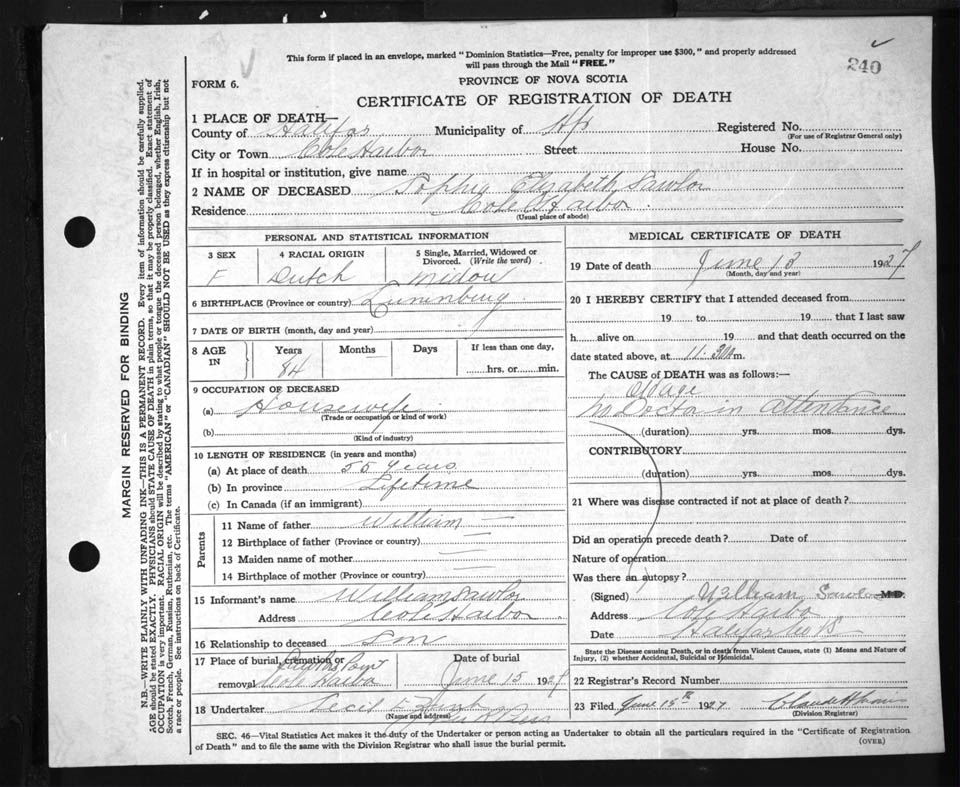 This form if placed in an envelope, marked "Dominion Statistics—Free, penalty for improper use $300," and properly addressed
will pass through the Mail "FREE."
240
FORM 6.
PROVINCE OF NOVA SCOTIA
CERTIFICATE OF REGISTRATION OF DEATH
1 PLACE OF DEATH—
County of Halifax Municipality of Hfx Registered No.
(For use of Registrar General only)
City or Town Cole Harbor Street House No.
If in hospital or institution, give name
2 NAME OF DECEASED Sophia Elizabeth Sawlor
Residence Cole Harbor
(Usual place of abode)
PERSONAL AND STATISTICAL INFORMATION
3 SEX 4 RACIAL ORIGIN 5 Single, Married, Widowed or
Divorced. (Write the word)
F Dutch Widow
6 BIRTHPLACE (Province or country) Lunenburg
7 DATE OF BIRTH (month, day and year)
8 AGE IN Years Months Days If less than one day,
84 hrs. or min.
9 OCCUPATION OF DECEASED
(a) Housewife
(Trade or occupation or kind of work)
(b)
(Kind of industry)
10 LENGTH OF RESIDENCE (in years and months)
(a) At place of death 55 years
(b) In province Lifetime
(c) In Canada (if an immigrant)
Parents
11 Name of father William —
12 Birthplace of father (Province or country) —
13 Maiden name of mother —
14 Birthplace of mother (Province or country)
15 Informant's name William Sawlor
Address Cole Harbor
16 Relationship to deceased Son
17 Place of burial, cremation or Date of burial
removal Cole Harbor June 15 1927
18 Undertaker Cecil E
(Name and address)
MEDICAL CERTIFICATE OF DEATH
19 Date of death June 13 1927
(Month, day and year)
20 I HEREBY CERTIFY that I attended deceased from
19 to 19 that I last saw
h alive on 19 and that death occurred on the
date stated above, at 11.30 m.
The CAUSE of DEATH was as follows:—
Old age
No Doctor in attendance
(duration) yrs. mos. dys.
CONTRIBUTORY
(duration) yrs. mos. dys.
21 Where was disease contracted if not at place of death?
Did an operation precede death? Date of
Nature of operation
Was there an autopsy?
(Signed) William Sawlor M.D.
Address Cole Harbor
Date Halifax Co
State the Disease causing Death, or in death from Violent Causes, state (1) Means and Nature of
Injury, (2) whether Accidental, Suicidal or Homicidal.
22 Registrar's Record Number
23 Filed June 15th 1927
(Division Registrar)
SEC. 46—Vital Statistics Act makes it the duty of the Undertaker or person acting as Undertaker to obtain all the particulars required in the "Certificate of Registration
of Death" and to file the same with the Division Registrar who shall issue the burial permit.
(OVER)
MARGIN RESERVED FOR BINDING
N.B.—WRITE PLAINLY WITH UNFADING INK—THIS IS A PERMANENT RECORD. Every item of information should be carefully supplied.
AGE should be stated EXACTLY. PHYSICIANS should STATE CAUSE OF DEATH in plain terms, so that it may be properly classified. Exact statement of
OCCUPATION is very important. RACIAL ORIGIN will be described by stating to what people or tongue the deceased person belonged, whether English, Irish,
Scotch, French, German, Russian, Ruthenian, etc. The terms "AMERICAN" or "CANADIAN" SHOULD NOT BE USED as they express citizenship but not
a race or people. See instructions on back of Certificate.